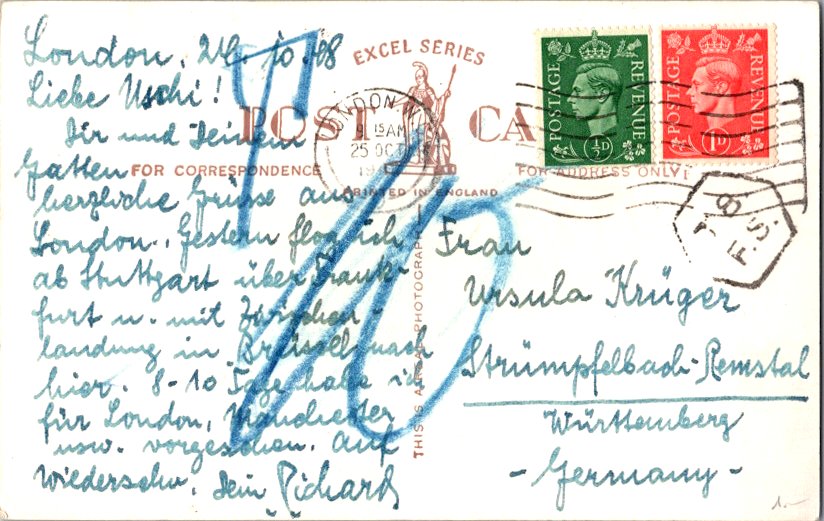 London, 24.10.48
Liebe Uschi!
Dir und Deinem
Gatten
herzliche Grüsse aus
London. Gestern flog ich
ab Stuttgart über Frank-
furt u. mit Zwischen-
landung in Brüssel nach
hier. 8-10 Tage habe ich
für London, Manchester
usw. vorgesehen. Auf
Wiedersehn, Dein Richard
EXCEL SERIES
POST CA
FOR CORRESPONDENCE
FOR ADDRESS ONLY
PRINTED IN ENGLAND
THIS IS A REAL PHOTOGRAPH
LONDON. N
9 15AM
25 OCT
19
POSTAGE REVENUE
½D
POSTAGE REVENUE
1D
T
10
T
8
F.S.
Frau
Ursula Krüger
Strümpfelbach-Remstal
Württemberg
- Germany -